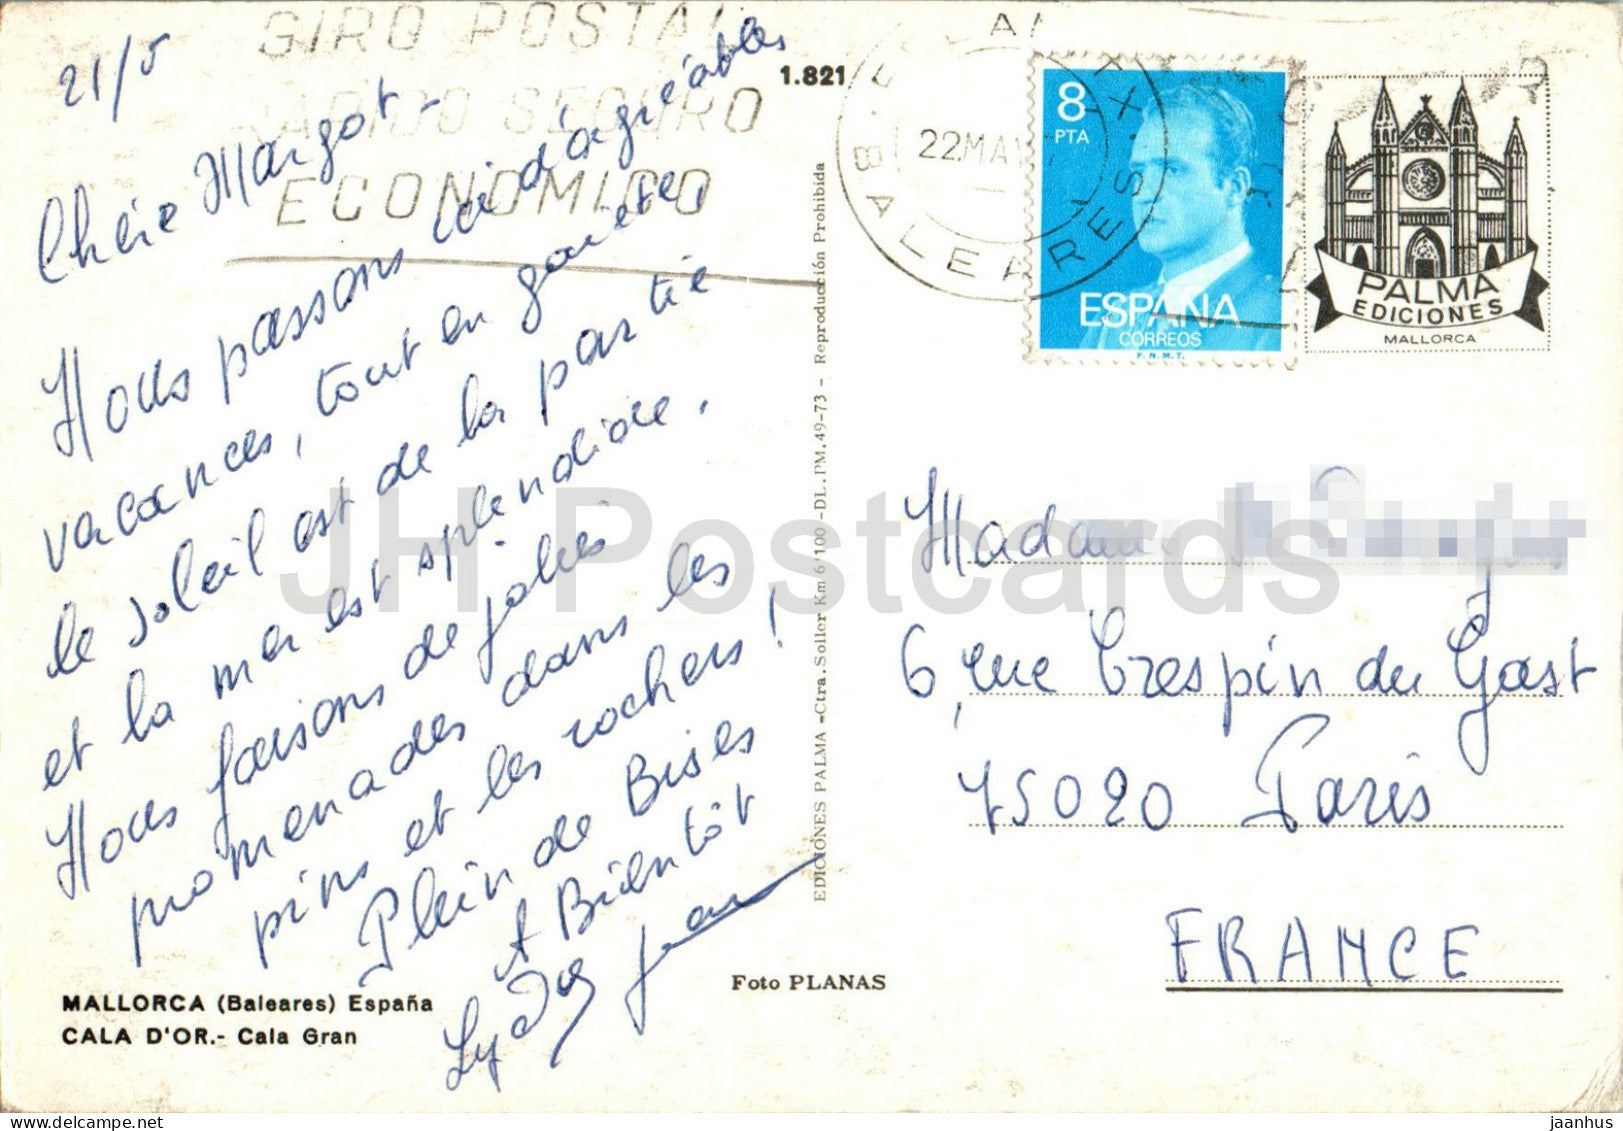 21/5
Chère Margot -
Nous passons ici d'agréables
vacances, tout en gaieté,
le soleil est de la partie
et la mer est splendide.
Nous faisons de jolies
promenades dans les
pins et les rochers !
Plein de Bises
A Bientôt
MALLORCA (Baleares) España
CALA D'OR.- Cala Gran
GIRO POSTAL
SEGURO
ECONOMICO
1.821
EDICIONES PALMA -Ctra. Soller Km 6'100 -DL. PM. 49-73 - Reproducción Prohibida
Foto PLANAS
22 MAY
BALEARES
8
PTA
ESPAÑA
CORREOS
F.N.M.T.
PALMA
EDICIONES
MALLORCA
Madame
6, rue Crespin du Gast
75020 Paris
FRANCE
JH Postcards
jaanhus